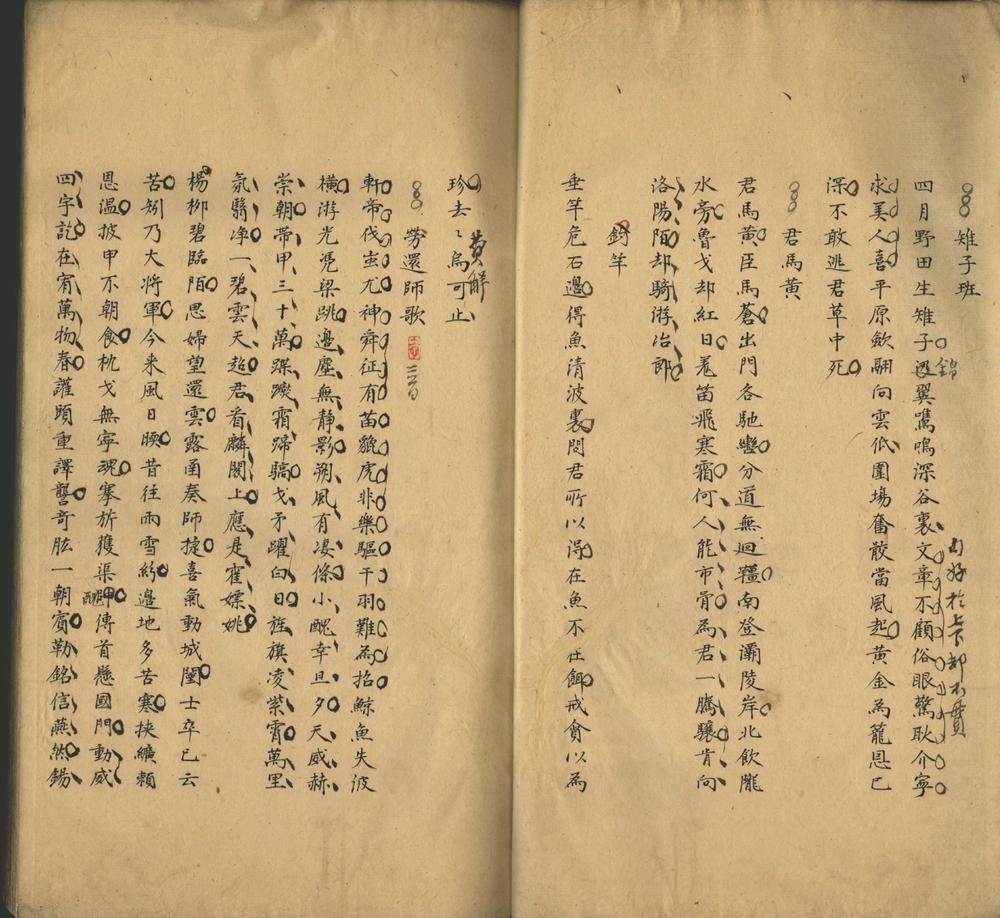 雉子班
四月野田生雉子錦翼鷕鳴深谷裏文章不顧俗眼驚耿介寧
求美人喜平原歘翮向雲低圍場奮散當風起黃金為籠恩已
深不敢逃君草中死
君馬黃
君馬黃臣馬蒼出門各馳轡分道無迴韁南登灞陵岸北飲隴
水旁魯戈却紅日羌笛飛寒霜何人能市骨為君一騰驤肯向
洛陽陌却騎游冶郎
釣竿
垂竿危石邊得魚清波裏問君所以得在魚不在餌戒貪以為
珍去去烏可止
黃解
勞還師歌
軒帝伐蚩尤神舜征有苗貔虎非樂驅干羽難為招鯨魚失波
橫游光憑梁跳邊塵無靜影朔風有淒條小醜幸旦夕天威赫
崇朝帶甲三十萬蹀躞霜蹄驕戈矛躍白日旌旗凌紫霄萬里
氛翳净一碧雲天超君看麟閣上應是霍嫖姚
楊柳碧臨陌思婦望還雲露函奏師捷喜氣動城闉士卒已云
苦矧乃大將軍今来風日暖昔往雨雪紛邊地多苦寒挾纊賴
恩溫披甲不朝食枕戈無寧魂搴旂獲渠醜傳首懸國門動威
四宇訖在宥萬物春謹頭重譯讋奇肱一朝賓勒銘信燕然錫